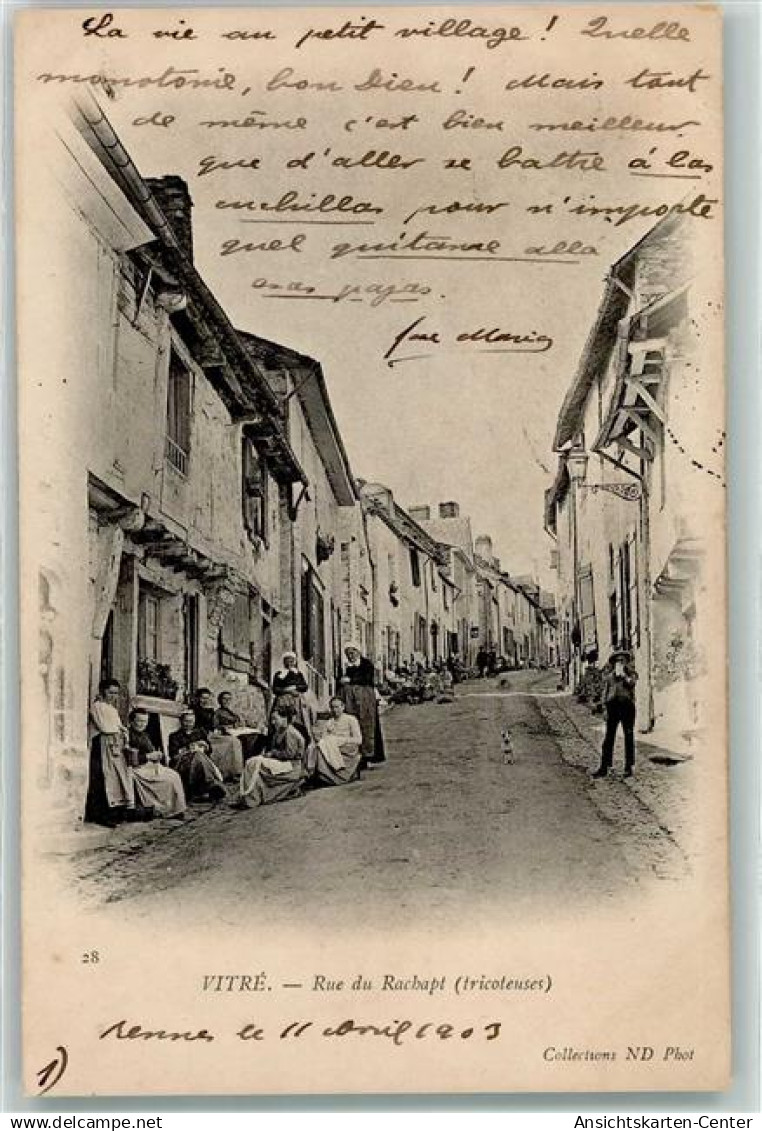 La vie au petit village ! Quelle
monotonie, bon Dieu ! Mais tant
de même c'est bien meilleur
que d'aller se battre à las
cuchillas pour n'importe
quel guitanne allá
esas pajas.
José Maria
28
VITRÉ. — Rue du Rachapt (tricoteuses)
Rennes le 11 Avril 1903
Collections ND Phot
1)
Ansichtskarten-Center